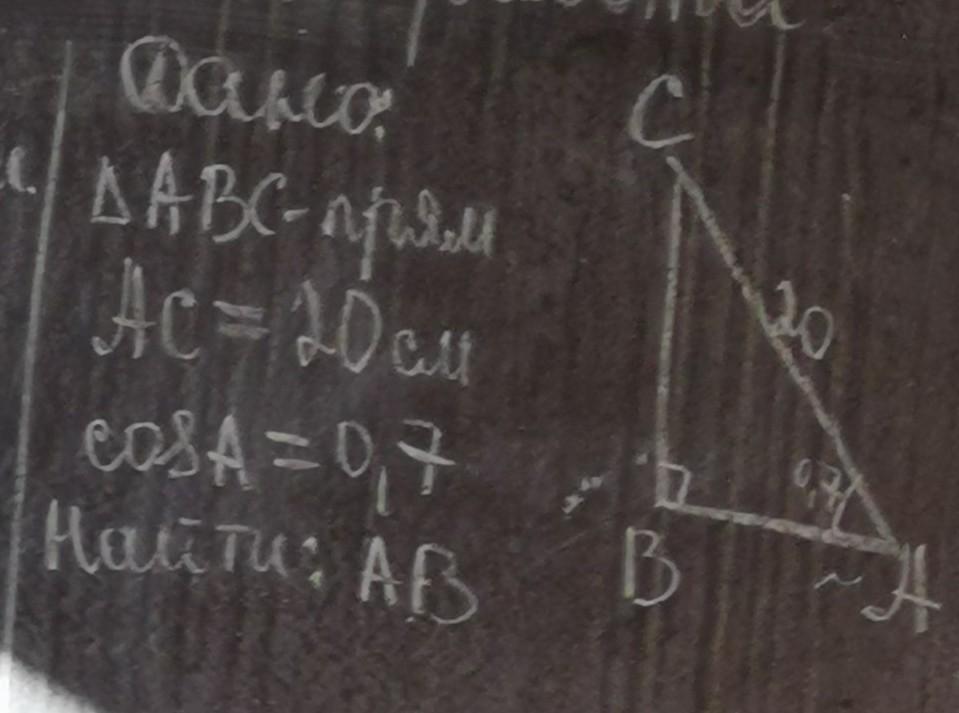 Дано:
ΔABC-прям
AC = 20 см
cosA = 0,7
Найти: AB
C
20
0,7
B
A